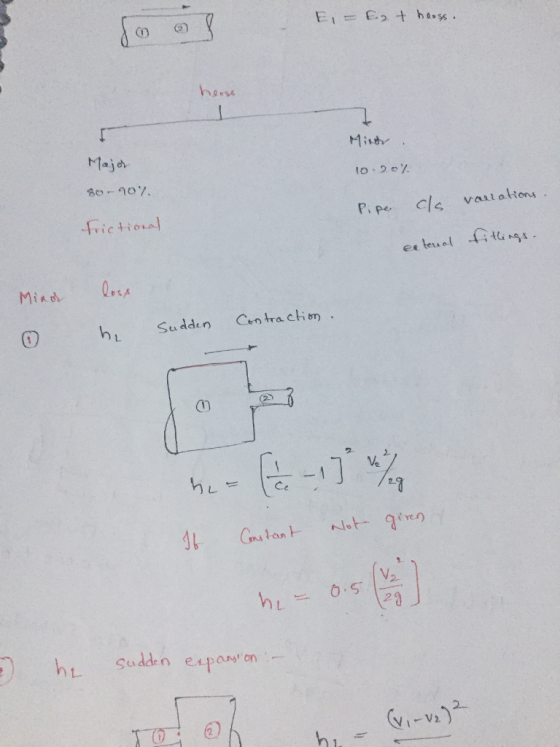 ① ②
E₁ = E₂ + hloss.
hloss
Major
Minor.
80-90%
10-20%
frictional
Pipe C/S variations.
external fittings.
Minor loss
① hL Sudden Contraction.
① ②
hL = [1/Cc - 1]² V₂²/2g
If Constant Not given
hL = 0.5 [V₂²/2g]
hL sudden expansion:-
① ②
hL = (V₁-V₂)²